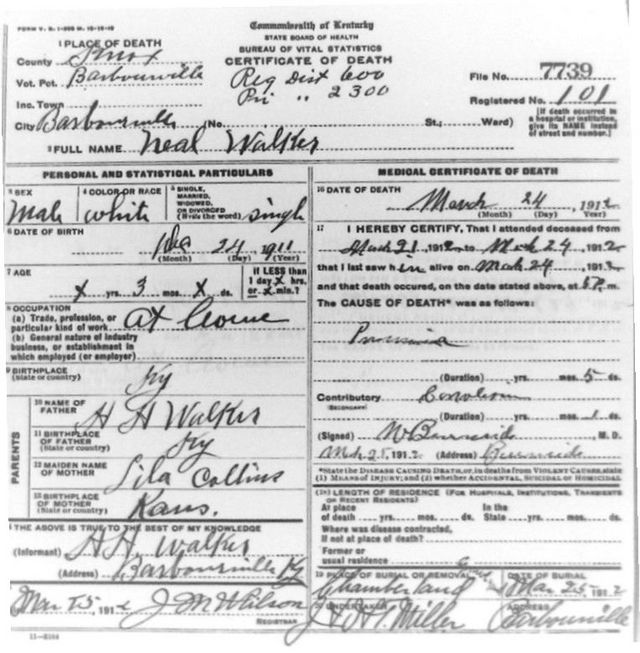 FORM V. S. 1-
Commonwealth of Kentucky
STATE BOARD OF HEALTH
BUREAU OF VITAL STATISTICS
CERTIFICATE OF DEATH
1 PLACE OF DEATH
County Knox
Vot. Pct. Barbourville
Inc. Town
City Barbourville (No. St.; Ward)
Reg Dist 600
Pri " 2300
File No. 7739
Registered No. 101
(If death occurred in a hospital or institution, give its NAME instead of street and number.)
2 FULL NAME Neal Walker
PERSONAL AND STATISTICAL PARTICULARS
3 SEX
Male
4 COLOR OR RACE
white
5 SINGLE, MARRIED, WIDOWED, OR DIVORCED (Write the word) single
6 DATE OF BIRTH
Dec 24 1911
(Month) (Day) (Year)
7 AGE
x yrs. 3 mos. x ds.
If LESS than 1 day x hrs. or x min.?
8 OCCUPATION
(a) Trade, profession, or particular kind of work at home
(b) General nature of industry business, or establishment in which employed (or employer)
9 BIRTHPLACE
(State or country) Ky
PARENTS
10 NAME OF FATHER H H Walker
11 BIRTHPLACE OF FATHER
(State or country) Ky
12 MAIDEN NAME OF MOTHER Lila Collins
13 BIRTHPLACE OF MOTHER
(State or country) Kans.
THE ABOVE IS TRUE TO THE BEST OF MY KNOWLEDGE
(Informant) H H. Walker
(Address) Barbourville Ky
Mar 25 191 2 J M Wilson
REGISTRAR
MEDICAL CERTIFICATE OF DEATH
16 DATE OF DEATH
March 24, 1912
(Month) (Day) (Year)
17 I HEREBY CERTIFY, That I attended deceased from
March 21, 1912 to March 24, 1912
that I last saw him alive on March 24, 1912
and that death occured, on the date stated above, at 6 P. m.
The CAUSE OF DEATH* was as follows:
(Duration) yrs. mos. 5 ds.
Contributory
(SECONDARY)
(Duration) yrs. mos. 1 ds.
(Signed) Burnside M. D.
Mch 25, 1912 (Address)
*State the DISEASE CAUSING DEATH, or, in deaths from VIOLENT CAUSES, state
(1) MEANS OF INJURY; and (2) whether ACCIDENTAL, SUICIDAL or HOMICIDAL
LENGTH OF RESIDENCE (FOR HOSPITALS, INSTITUTIONS, TRANSIENTS OR RECENT RESIDENTS)
At place of death yrs. mos. ds.
In the State yrs. mos. ds.
Where was disease contracted, if not at place of death?
Former or usual residence
19 PLACE OF BURIAL OR REMOVAL
Chamberland
DATE OF BURIAL
Mar 25 191 2
20 UNDERTAKER
Miller
ADDRESS
Barbourville